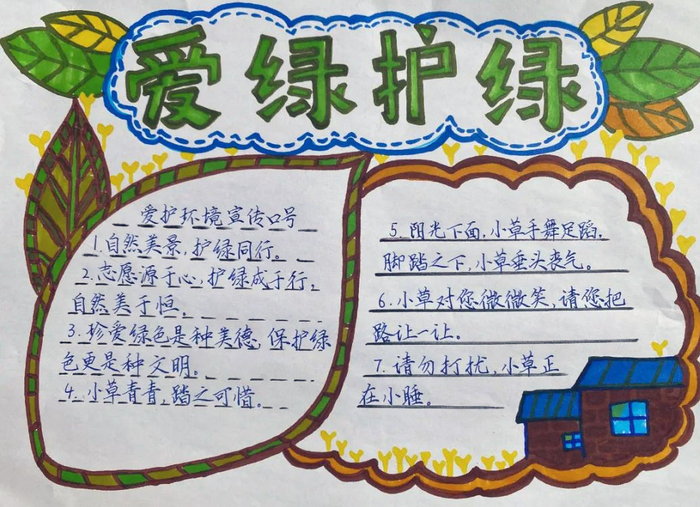 爱绿护绿
爱护环境宣传口号
1.自然美景,护绿同行。
2.志愿源于心,护绿成于行,
自然美于恒。
3.珍爱绿色是种美德,保护绿
色更是种文明。
4.小草青青,踏之可惜。
5.阳光下面,小草手舞足蹈,
脚踏之下,小草垂头丧气。
6.小草对您微微笑,请您把
路让一让。
7.请勿打扰,小草正
在小睡。